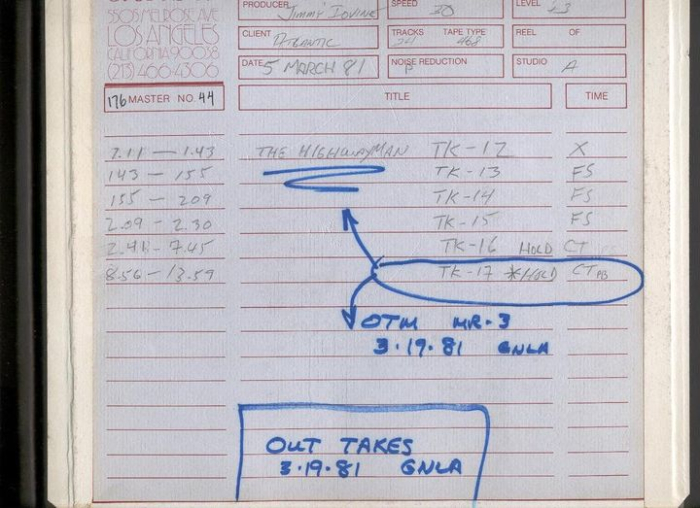 PRODUCER Jimmy Iovine
SPEED 30
LEVEL +3
5505 MELROSE AVE
LOS ANGELES
CALIFORNIA 90038
(213) 466-4306
CLIENT ATLANTIC
TRACKS 24 TAPE TYPE 468
REEL OF
DATE 5 MARCH 81
NOISE REDUCTION
STUDIO A
176 MASTER NO. 44
TITLE
TIME
THE HIGHWAYMAN TK-12 X
143 - 155 TK-13 FS
155 - 209 TK-14 FS
2.09 - 2.30 TK-15 FS
2.41 - 7.45 TK-16 HOLD CT
8.56 - 13.59 TK-17 *HOLD CT PB
OTM MR-3
3.19.81 GNLA
OUT TAKES
3.19.81 GNLA